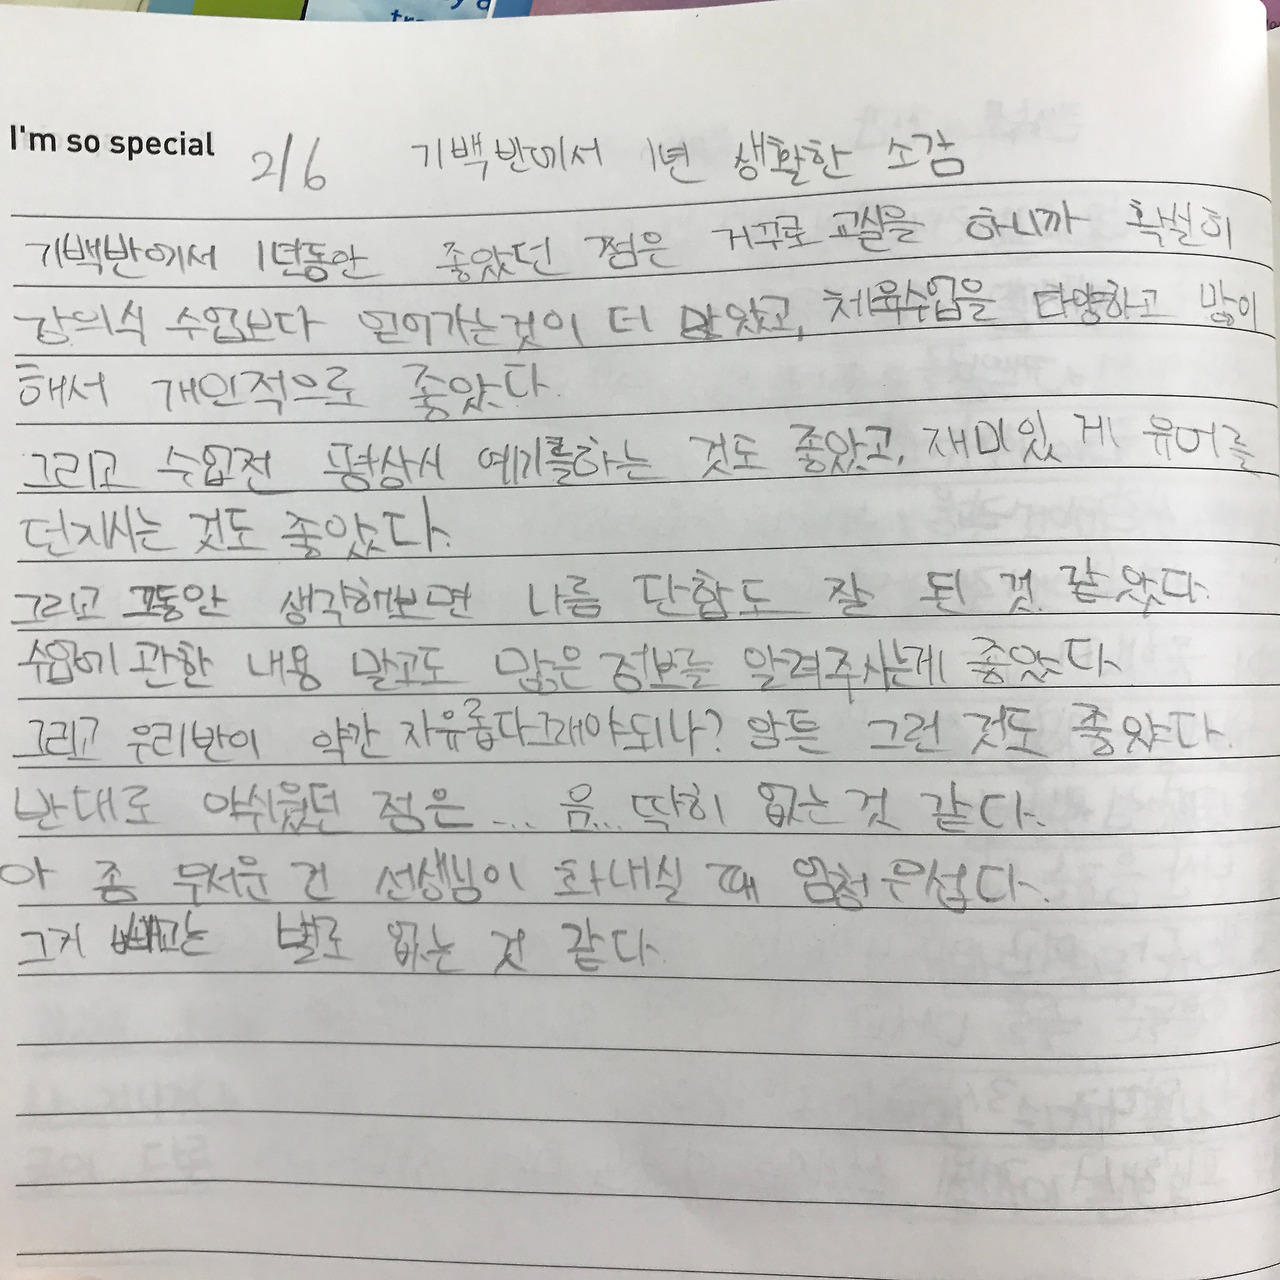 I'm so special
2/6 기백반에서 1년 생활한 소감
기백반에서 1년동안 좋았던 점은 거꾸로 교실을 하니까 확실히
강의식 수업보다 얻어가는것이 더 많았고, 체육수업을 다양하고 많이
해서 개인적으로 좋았다.
그리고 수업전 평상시 얘기를하는 것도 좋았고, 재미있 게 유머를
던지시는 것도 좋았다.
그리고 그동안 생각해보면 나름 단합도 잘 된 것 같았다.
수업에 관한 내용 말고도 많은 정보를 알려주시는게 좋았다
그리고 우리반이 약간 자유롭다그래야되나? 암튼 그런 것도 좋았다.
반대로 아쉬웠던 점은 ... 음... 딱히 없는 것 같다.
아 좀 무서운 건 선생님이 화내실 때 엄청 무섭다.
그거 빼고는 별로 없는 것 같다.